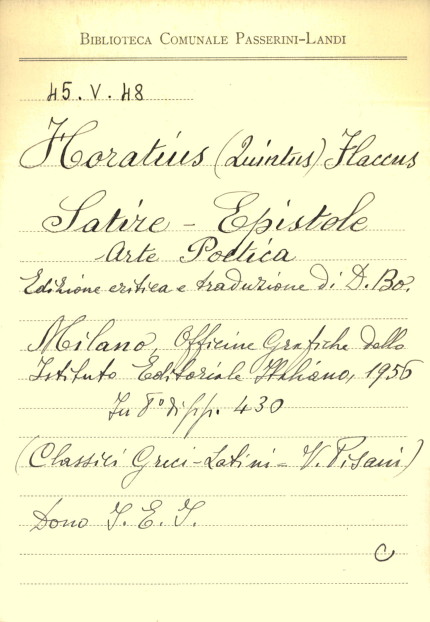 BIBLIOTECA COMUNALE PASSERINI-LANDI
45.V.48
Horatius (Quintus) Flaccus
Satire - Epistole
Arte Poetica
Edizione critica e traduzione di D. Bo.
Milano, Officine Grafiche dello
Istituto Editoriale Italiano, 1956
In 8° di pp. 430
(Classici Greci-Latini - V. Pisani)
Dono I. E. I.
C